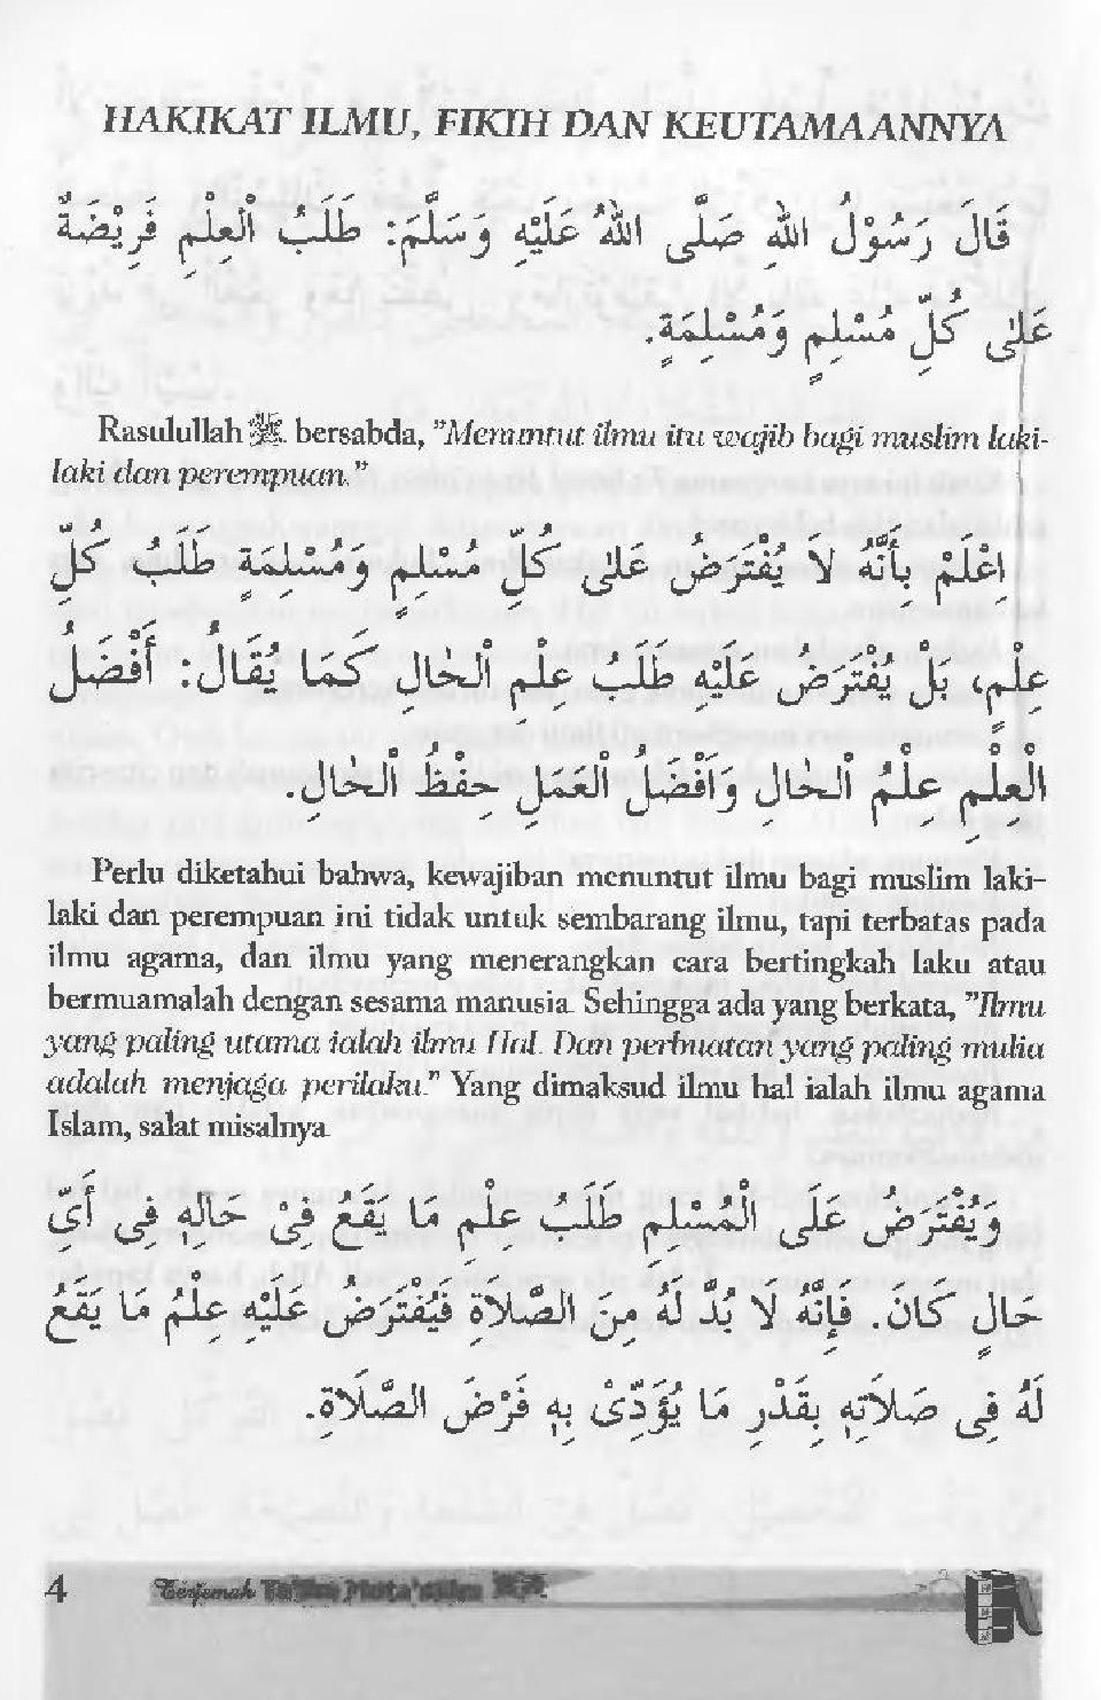 HAKIKAT ILMU, FIKIH DAN KEUTAMAANNYA
قَالَ رَسُوْلُ اللهِ صَلَّى اللهُ عَلَيْهِ وَسَلَّمَ: طَلَبُ الْعِلْمِ فَرِيْضَةٌ
عَلٰى كُلِّ مُسْلِمٍ وَمُسْلِمَةٍ.
Rasulullah ﷺ bersabda, "Menuntut ilmu itu wajib bagi muslim laki-
laki dan perempuan."
اِعْلَمْ بِأَنَّهُ لَا يُفْتَرَضُ عَلٰى كُلِّ مُسْلِمٍ وَمُسْلِمَةٍ طَلَبُ كُلِّ
عِلْمٍ، بَلْ يُفْتَرَضُ عَلَيْهِ طَلَبُ عِلْمِ الْحَالِ كَمَا يُقَالُ: أَفْضَلُ
الْعِلْمِ عِلْمُ الْحَالِ وَاَفْضَلُ الْعَمَلِ حِفْظُ الْحَالِ.
Perlu diketahui bahwa, kewajiban menuntut ilmu bagi muslim laki-
laki dan perempuan ini tidak untuk sembarang ilmu, tapi terbatas pada
ilmu agama, dan ilmu yang menerangkan cara bertingkah laku atau
bermuamalah dengan sesama manusia. Sehingga ada yang berkata, "Ilmu
yang paling utama ialah ilmu Hal. Dan perbuatan yang paling mulia
adalah menjaga perilaku." Yang dimaksud ilmu hal ialah ilmu agama
Islam, salat misalnya.
وَيُفْتَرَضُ عَلَى الْمُسْلِمِ طَلَبُ عِلْمِ مَا يَقَعُ فِيْ حَالِهِ فِى أَيِّ
حَالٍ كَانَ. فَإِنَّهُ لَا بُدَّ لَهُ مِنَ الصَّلَاةِ فَيُفْتَرَضُ عَلَيْهِ عِلْمُ مَا يَقَعُ
لَهُ فِى صَلَاتِهِ بِقَدْرِ مَا يُؤَدِّىْ بِهِ فَرْضَ الصَّلَاةِ.
4 Terjemah Ta'lim Muta'allim